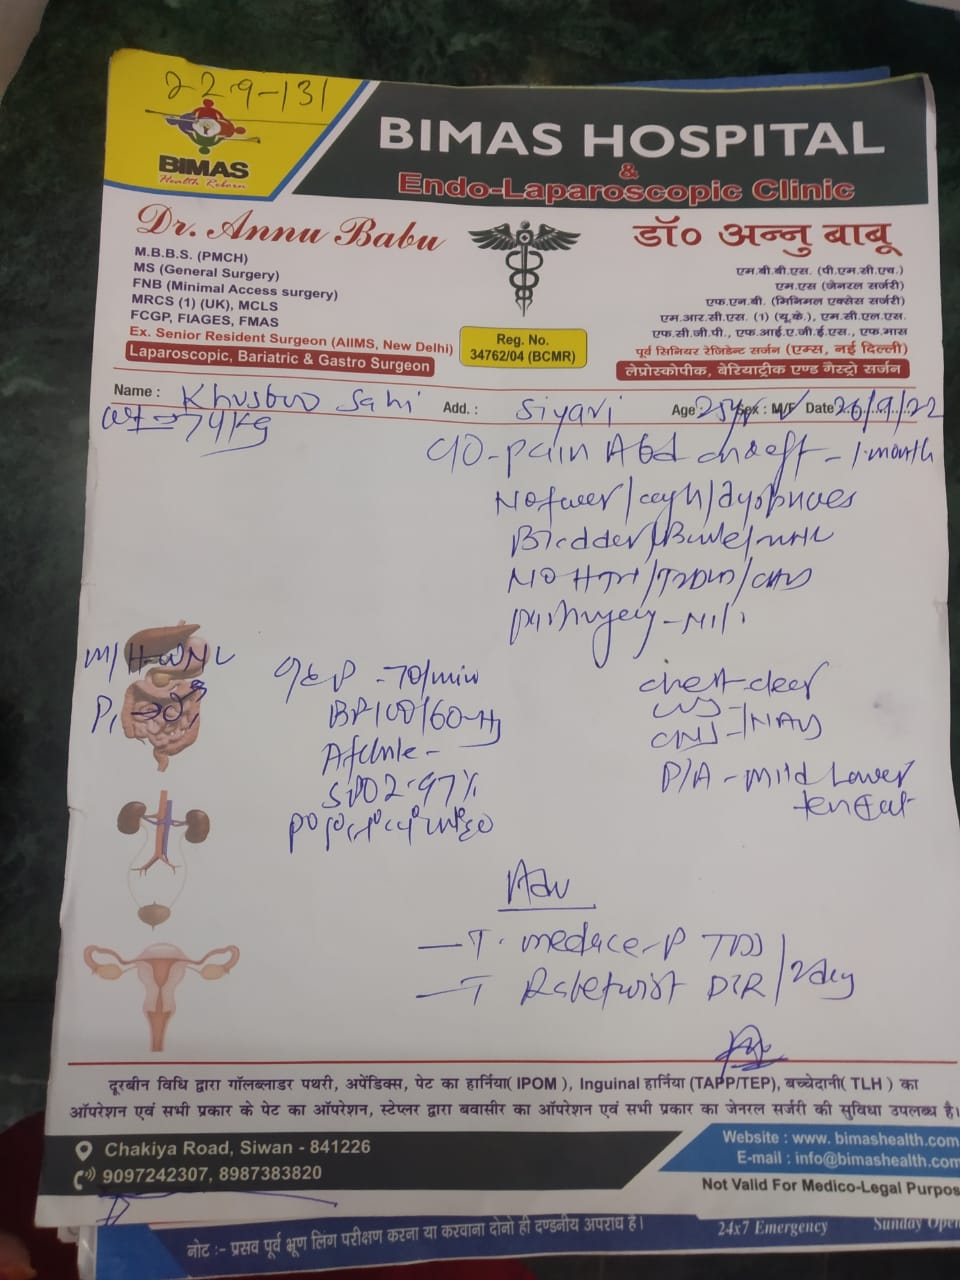 229-131
BIMAS
Health Reborn
BIMAS HOSPITAL
&
Endo-Laparoscopic Clinic
Dr. Annu Babu
M.B.B.S. (PMCH)
MS (General Surgery)
FNB (Minimal Access surgery)
MRCS (1) (UK), MCLS
FCGP, FIAGES, FMAS
Ex. Senior Resident Surgeon (AIIMS, New Delhi)
Laparoscopic, Bariatric & Gastro Surgeon
Reg. No.
34762/04 (BCMR)
डॉ० अन्नु बाबू
एम.बी.बी.एस. (पी.एम.सी.एच.)
एम.एस (जेनरल सर्जरी)
एफ.एन.बी. (मिनिमल एक्सेस सर्जरी)
एम.आर.सी.एस. (1) (यू.के.), एम.सी.एल.एस.
एफ.सी.जी.पी., एफ.आई.ए.जी.ई.एस., एफ.मास
पूर्व सिनियर रेजिडेन्ट सर्जन (एम्स, नई दिल्ली)
लेप्रोस्कोपीक, बेरियाट्रीक एण्ड गेस्ट्रो सर्जन
Name : Khusboo Sahi Add. : Siyari Age 25yr Sex : M/F Date 26/9/22
wt → 74kg
C/O - pain Abd - 1 month
No fever/cough/
Bladder/Bowel/
NO HTN/T2DM/
- Nil
M/H - WNL
O/E P - 70/min
BP 100/60
Afebrile -
SPO2 - 97%
chest - clear
CVS
CNS - NAD
P/A - Mild Lower
Adv
- T. P TDS
- T DSR / 2 day
दूरबीन विधि द्वारा गॉलब्लाडर पथरी, अपेंडिक्स, पेट का हार्निया( IPOM ), Inguinal हार्निया (TAPP/TEP), बच्चेदानी( TLH ) का
ऑपरेशन एवं सभी प्रकार के पेट का ऑपरेशन, स्टेप्लर द्वारा बवासीर का ऑपरेशन एवं सभी प्रकार का जेनरल सर्जरी की सुविधा उपलब्ध है।
Chakiya Road, Siwan - 841226
9097242307, 8987383820
Website : www. bimashealth.com
E-mail : info@bimashealth.com
Not Valid For Medico-Legal Purpos
नोट :- प्रसव पूर्व भ्रूण लिंग परीक्षण करना या करवाना दोनो ही दण्डनीय अपराध है।
24x7 Emergency
Sunday Open